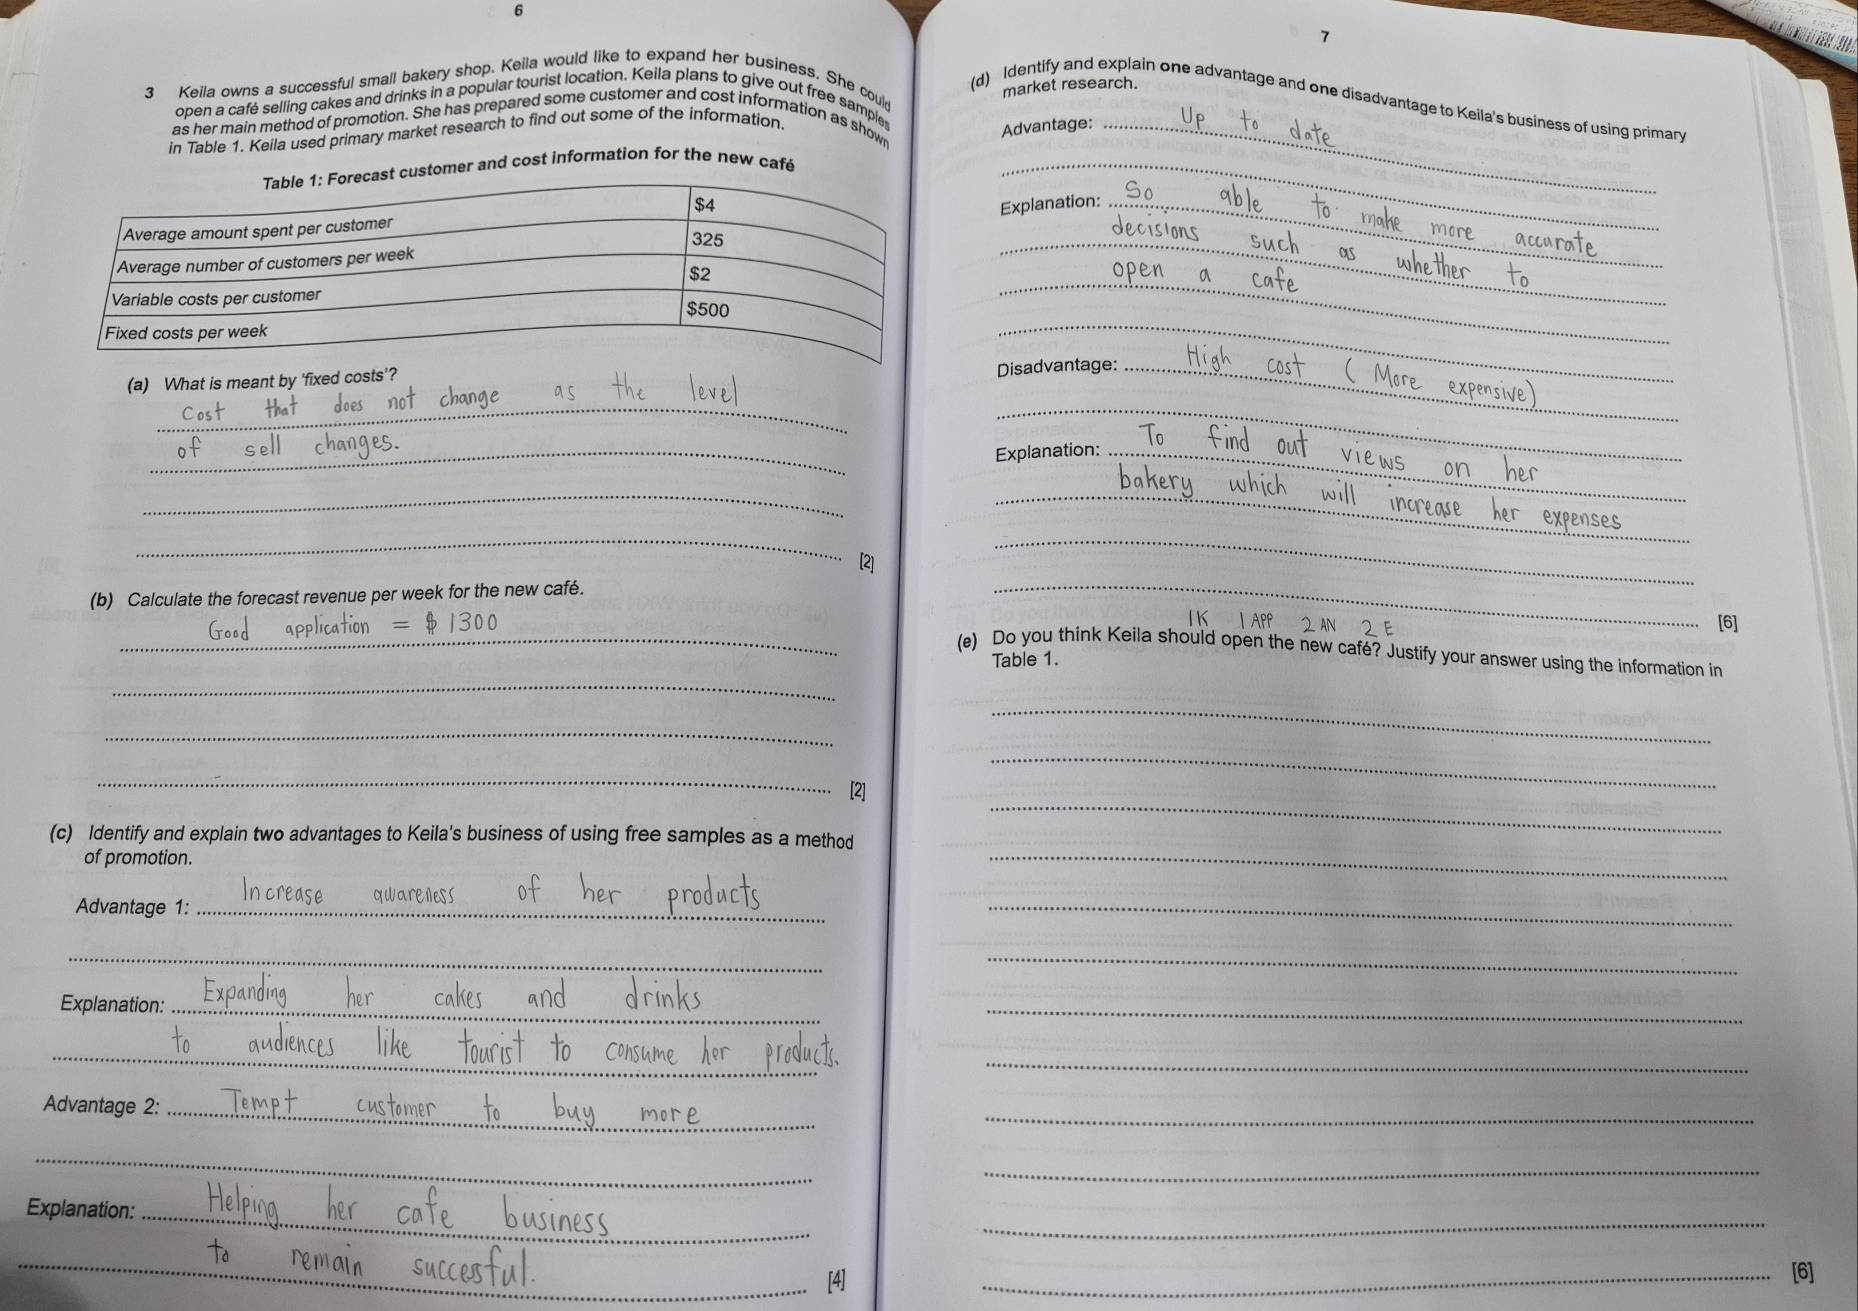 6
3 Keila owns a successful small bakery shop. Keila would like to expand her business. She could
open a café selling cakes and drinks in a popular tourist location. Keila plans to give out free samples
as her main method of promotion. She has prepared some customer and cost information as shown
in Table 1. Keila used primary market research to find out some of the information.
Table 1: Forecast customer and cost information for the new café
Average amount spent per customer $4
Average number of customers per week 325
Variable costs per customer $2
Fixed costs per week $500
(a) What is meant by 'fixed costs'?
Cost that does not change as the level
of sell changes.
[2]
(b) Calculate the forecast revenue per week for the new café.
Good application = $ 1300
[2]
(c) Identify and explain two advantages to Keila's business of using free samples as a method
of promotion.
Advantage 1: Increase awareness of her products
Explanation: Expanding her cakes and drinks
to audiences like tourist to consume her products.
Advantage 2: Tempt customer to buy more
Explanation: Helping her cafe business
to remain succesful.
[4]
7
(d) Identify and explain one advantage and one disadvantage to Keila's business of using primary
market research.
Advantage: Up to date
Explanation: So able to make more accurate
decisions such as whether to
open a cafe
Disadvantage: High cost (More expensive)
Explanation: To find out views on her
bakery which will increase her expenses
[6]
1K 1 APP 2 AN 2 E
(e) Do you think Keila should open the new café? Justify your answer using the information in
Table 1.
[6]